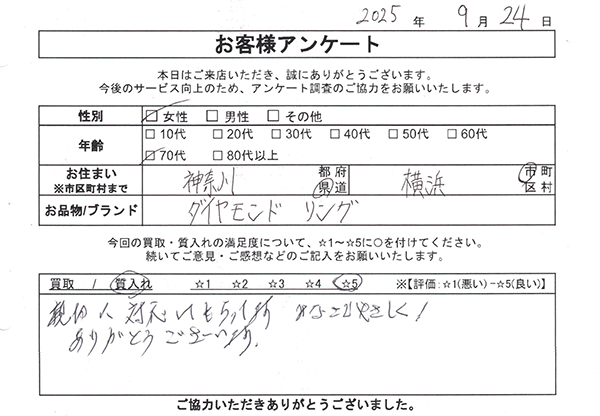 2025 年 9 月 24 日
お客様アンケート
本日はご来店いただき、誠にありがとうございます。
今後のサービス向上のため、アンケート調査のご協力をお願いいたします。
性別 □ 女性 □ 男性 □ その他
年齢 □ 10代 □ 20代 □ 30代 □ 40代 □ 50代 □ 60代
□ 70代 □ 80代以上
お住まい 神奈川 都 府 横浜 市 町
※市区町村まで 県 道 区 村
お品物/ブランド ダイヤモンド リング
今回の買取・質入れの満足度について、☆1~☆5に○を付けてください。
続いてご意見・ご感想などのご記入をお願いいたします。
買取 / 質入れ ☆1 ☆2 ☆3 ☆4 ☆5 ※【評価:☆1(悪い)-☆5(良い)】
親切に対応してもらってます
ありがとうございます。
ご協力いただきありがとうございました。